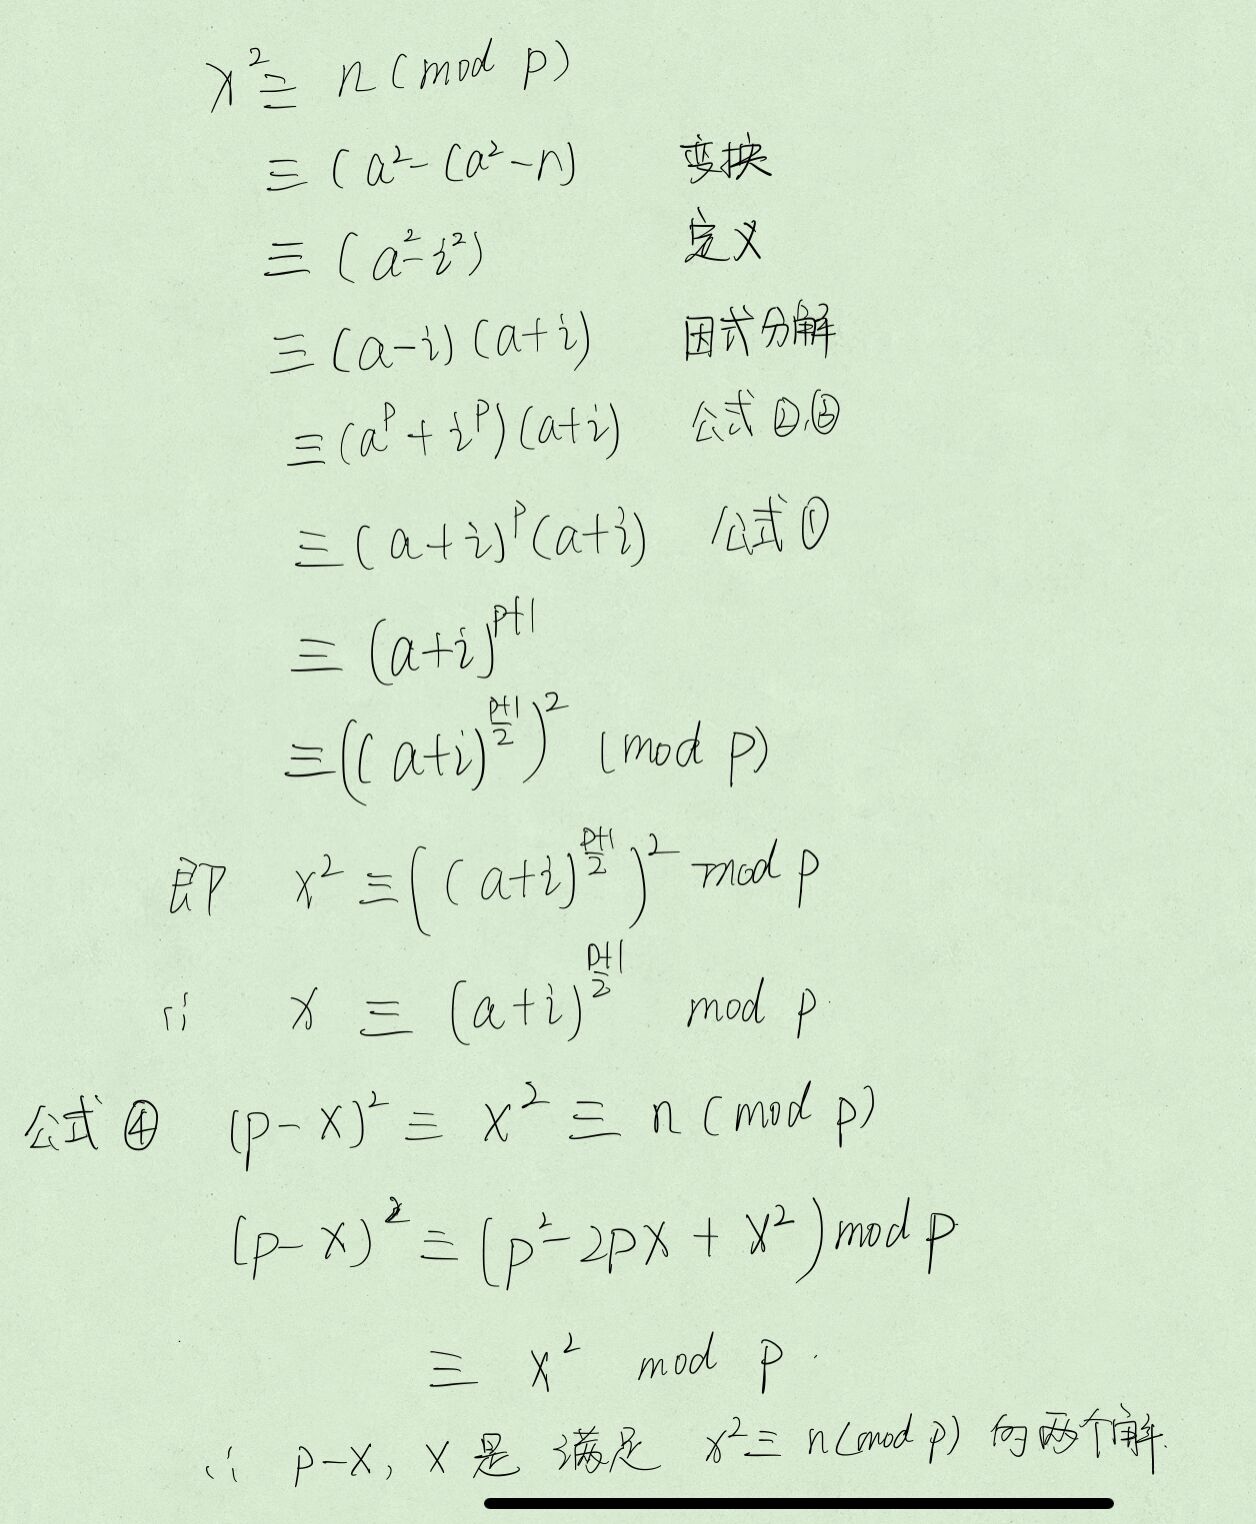 x² ≡ n (mod p)
≡ (a² - (a² - n) 变换
≡ (a² - i²) 定义
≡ (a - i) (a + i) 因式分解
≡ (a^p + i^p) (a + i) 公式 ②,③
≡ (a + i)^p (a + i) 公式 ①
≡ (a + i)^{p+1}
≡ ((a + i)^{\frac{p+1}{2}})² (mod p)
即 x² ≡ ((a + i)^{\frac{p+1}{2}})² mod p
∴ x ≡ (a + i)^{\frac{p+1}{2}} mod p
公式 ④ (p - x)² ≡ x² ≡ n (mod p)
(p - x)² ≡ (p² - 2px + x²) mod p
≡ x² mod p.
∴ p - x, x 是 满足 x² ≡ n (mod p) 的两个解.